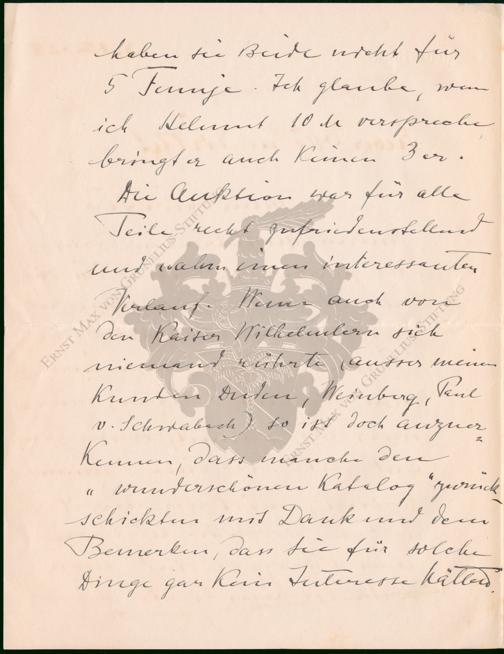 haben sie Beide nicht für
5 Fennije. Ich glaube, wenn
ich Helmut 10 M verspreche
bringt er auch keinen 3 er.
Die Auktion war für alle
Teile recht zufriedenstellend
und nahm einen interessanten
Verlauf. Wenn auch von
den Kaiser Wilhelmlern sich
niemand rührte (ausser meinen
Kunden Duden, Weinberg, Paul
v. Schwabach) so ist doch anzuer=
kennen, dass manche den
"wunderschönen Katalog" zurück-
schickten mit Dank und dem
Bemerken, dass sie für solche
Dinge gar kein Interesse hätten.
ERNST MAX VON GRUNELIUS-STIFTUNG
ERNST MAX VON GRUNELIUS-STIFTUNG